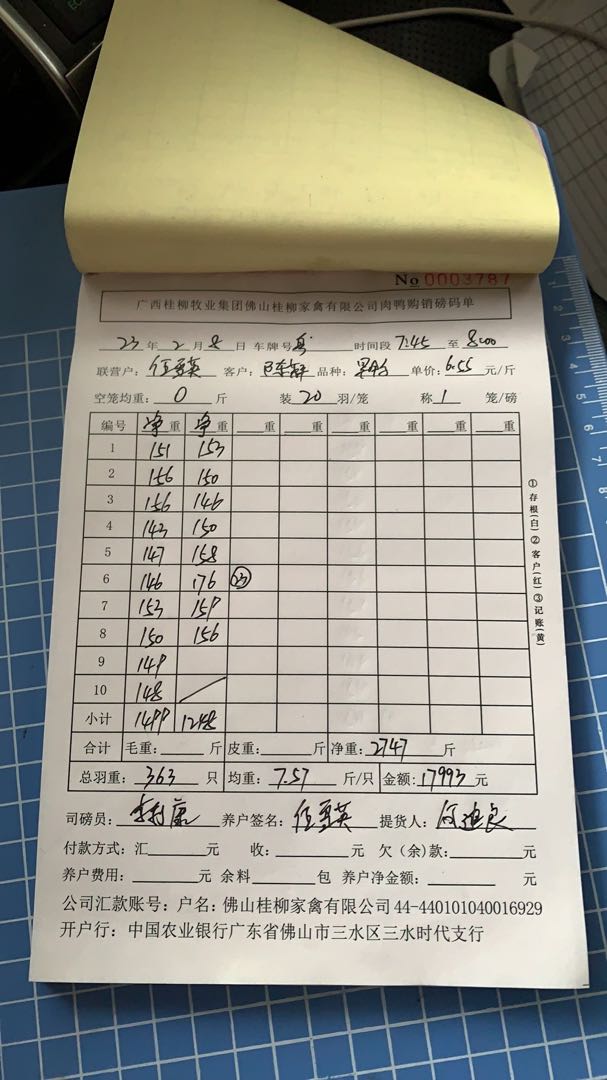 No 0003787
广西桂柳牧业集团佛山桂柳家禽有限公司肉鸭购销磅码单
23 年 2 月 8 日 车牌号 时间段 7:45 至 8:00
联营户: 任雪英 客户: 品种: 单价: 6.55 元/斤
空笼均重: 0 斤 装 20 羽/笼 称 1 笼/磅
编号 净重 净重 重 重 重 重 重 重
1 151 153
2 156 150
3 156 146
4 143 150
5 147 158
6 146 176 23
7 153 159
8 150 156
9 149
10 148
小计 1499 1248
合计 毛重: 斤 皮重: 斤 净重: 2747 斤
总羽重: 363 只 均重: 7.57 斤/只 金额: 17993 元
司磅员: 养户签名: 任雪英 提货人:
付款方式: 汇 元 收: 元 欠(余)款: 元
养户费用: 元 余料 包 养户净金额: 元
公司汇款账号: 户名: 佛山桂柳家禽有限公司 44-440101040016929
开户行: 中国农业银行广东省佛山市三水区三水时代支行
①存根(白)②客户(红)③记账(黄)